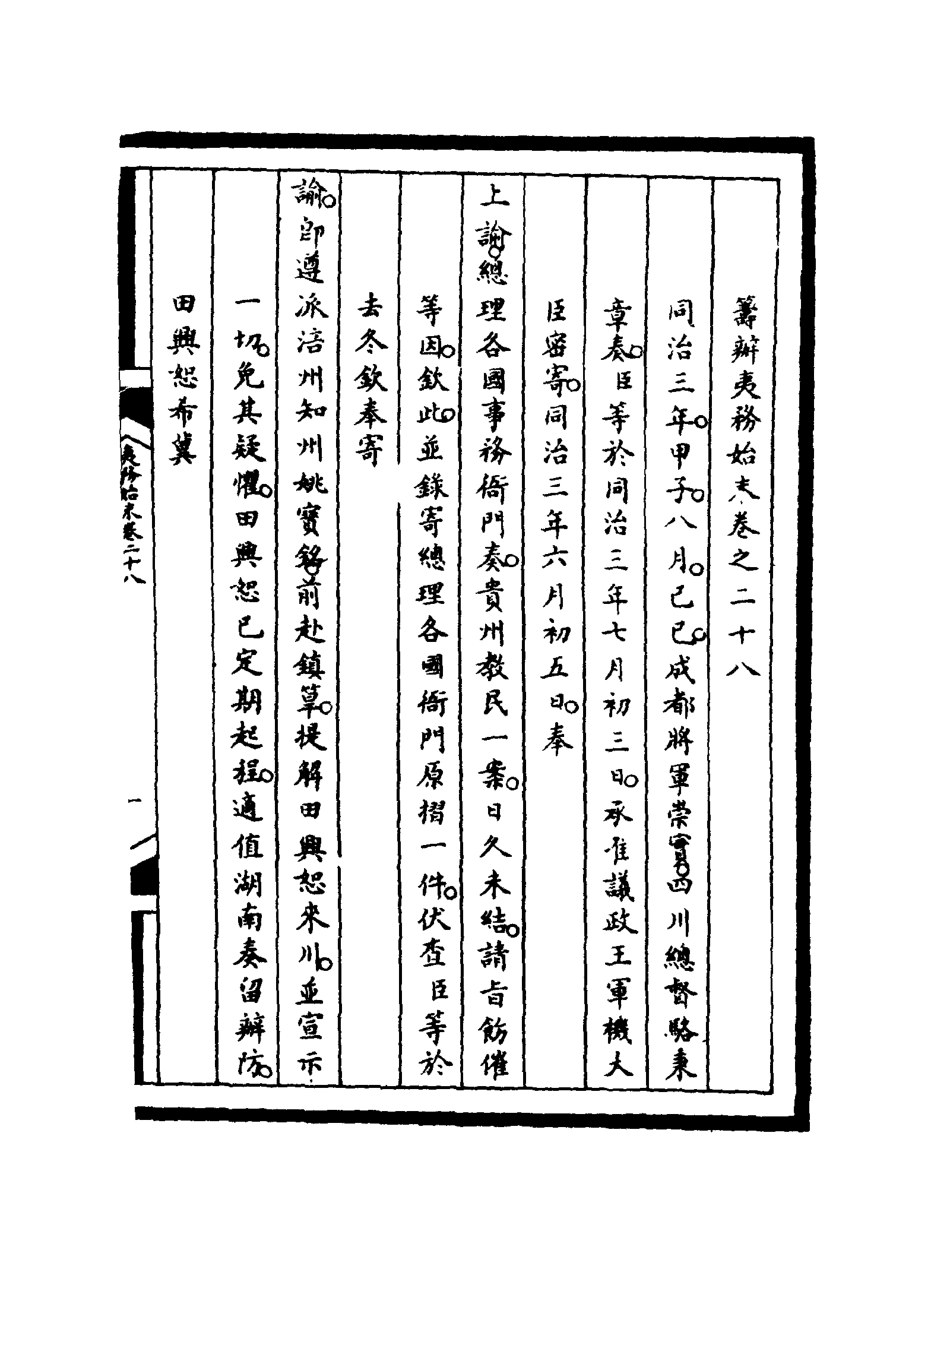 籌辦夷務始末卷之二十八
同治三年。甲子。八月。己巳。成都將軍崇實。四川總督駱秉
章奏。臣等於同治三年七月初三日。承准議政王軍機大
臣密寄。同治三年六月初五日。奉
上諭。總理各國事務衙門奏。貴州教民一案。日久未結。請旨飭催
等因。欽此。並錄寄總理各國衙門原摺一件。伏查臣等於
去冬欽奉寄
諭。即遵派涪州知州姚寶銘。前赴鎮筸。提解田興恕來川。並宣示
一切。免其疑懼。田興恕已定期起程。適值湖南奏留辦防。
田興恕希冀
夷務始末卷二十八
一